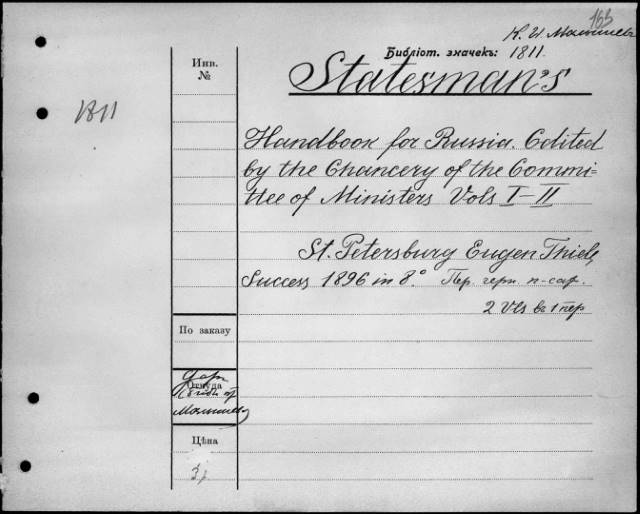 163
К. И. Малышев
Библіот. значекъ: 1811.
Инв.
№
1811
Statesman's
Handbook for Russia. Edited
by the Chancery of the Commi-
ttee of Ministers Vols I–II
St. Petersburg Eugen Thiele
Success 1896 in 8.° Пер. черн. п-саф.
2 Vls въ 1 пер
По заказу
Дар
Откуда
Малышев
Цѣна
3 р